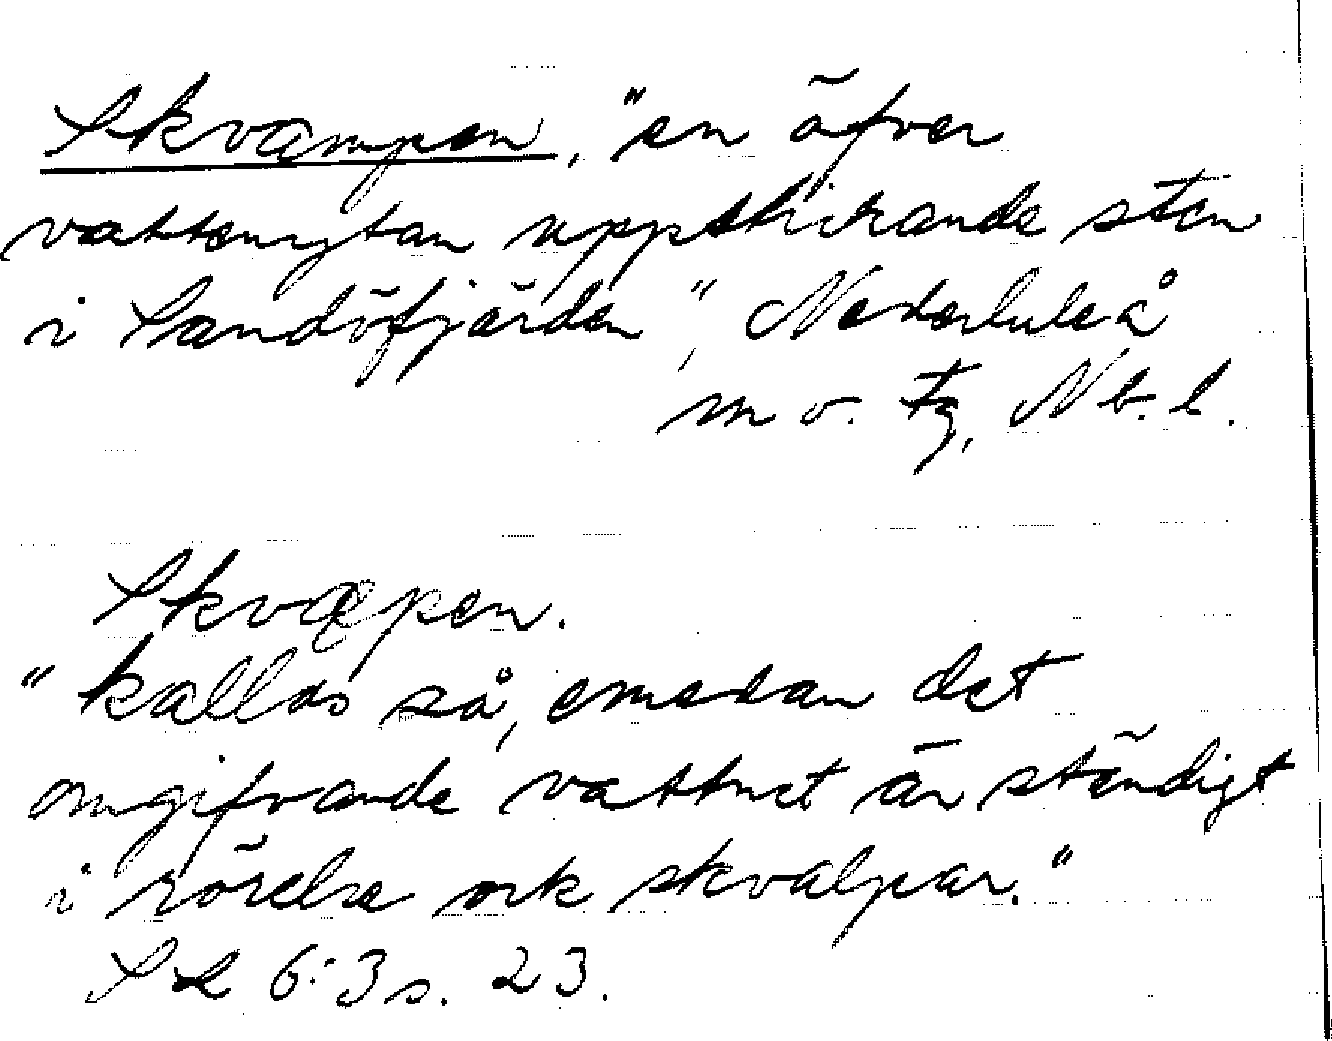 Skvampen, "en öfver
vattenytan uppstickande sten
i Sandöfjärden", Nederluleå
m o. tg, Nb. l.
Skvæpen.
"kallas så, emedan det
omgifvande vattnet är ständigt
i rörelse ock skvalpar."
SL 6:3 s. 23.